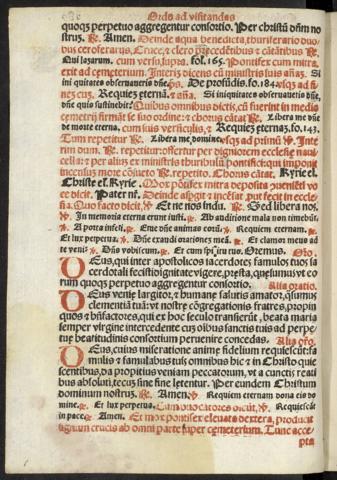 Ordo ad visitandas
quoqȝ perpetuo aggregentur consortio. Per christū dñm no
strum. ℟. Amen. Deinde aqua benedicta, thuriferario duo/
bus ceroferarijs, Cruce, ⁊ clero p̄cedētibus ⁊ cātātibus ℟.
Qui lazarum. cum versu, supra. fol. 165. Pontifex cum mitra.
exit ad cemeterium. Interiȝ dicens cū ministris suis añaȝ. Si
ini quitates obseruaueris dñe, ps. De profūdis. fo. 184. vsqȝ ad fi
neȝ cuȝ. Requiē eternā. ⁊ aña. Si iniquitates obseruaueris dñe,
dñe quis sustinebit? Quibus omnibus dictis, cū fuerint in medio
cemeterij firmāt se suo ordine: ⁊ chorus cātat ℟. Libera me dñe
de morte eterna. cum suis versiculis, ⁊ Requiē eternaȝ. fo. 143.
Tum repetitur ℟. Libera me domine, vsqȝ ad primū ℣. Inte
rim dum. ℟. repetitur: offertur per dignorem ecclesie naui
cella: ⁊ per alium ex ministris thuribulū pontifici: qui imponit
incensum more cōsueto ℟. repetito. Chorus cātat. Kyrie el.
Christe el. Kyrie. Mox pōtifex mitra deposita
dicit. Pater nr̄. Deinde aspgit ⁊ incēsat put fecit in eccle
sia. Quo facto dicit. ℣. Et ne nos inducas. ℟. Sed libera nos.
℣. In memoria eterna erunt iusti. ℟. Ab auditione mala non timebūt
℣. A porta inferi. ℟. Erue dñe animas eorū. ℣. Requiem eternam. ℟.
Et lux perpetua. ℣. Dñe exaudi orationeȝ meā. ℟. Et clamor meus ad
te veniat. ℣. Dñs vobiscum. ℟. Et cum spū tuo. Oremus. Oro.
DEus, qui inter apostolicos sacerdotes famulos tuos sa
cerdotali fecisti dignitate vigere, p̄sta, quesumus vt eo
rum quoqȝ perpetuo aggregentur consortio. Alia oratio.
DEus venie largitor, ⁊ humane salutis amator, q̄sumus
clementiā tuā: vt nostre cōgregationis fratres, propin
quos ⁊ bn̄factores, qui ex hoc seculo transierūt, beata maria
semper virgine intercedente cum oībus sanctis tuis ad perpe
tue beatitudinis consortium peruenire concedas. Alia oro.
DEus, cuius miseratione anime fidelium requiescūt: fa
mulis ⁊ famulabus tuis omnibus hic ⁊ in Christo quie
scentibus, da propitius veniam peccatorum, vt a cunctis reati
bus absoluti, tecum sine fine letentur. Per eundem Christum
dominum nostrum. ℟. Amen. ℣. Requiem eternam dona eis do
mine. ℟. Et lux perpetua. Tum duo cātores dicūt. ℣. Requiescāt
in pace. ℟. Amen. Et mox pontifex eleuata dextera, producit
signum crucis ab omni parte super cemeterium. Tunc acce
pta